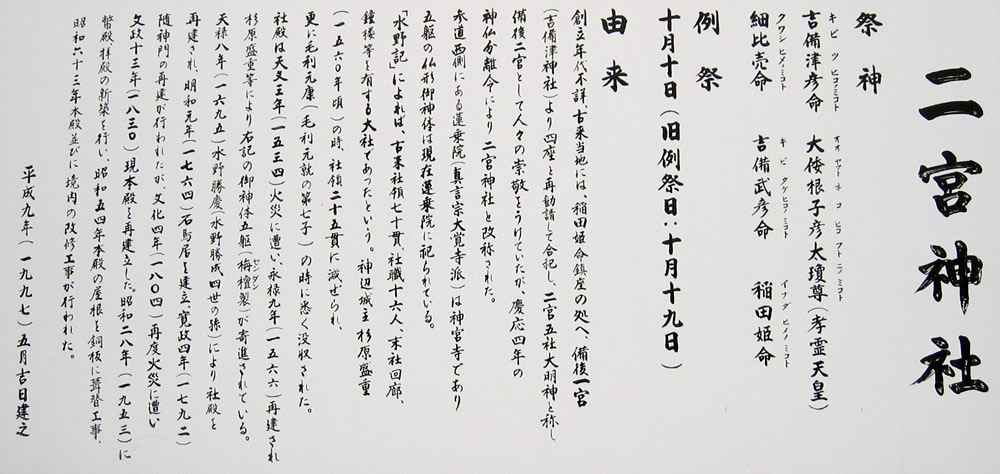 二宮神社
祭神
キビツヒコノミコト
吉備津彦命
オオヤマトネコヒコフトニノミコト
大倭根子彦太瓊尊(孝霊天皇)
クワシヒメノミコト
細比売命
キビタケヒコノミコト
吉備武彦命
イナダヒメノミコト
稲田姫命
例祭
十月十日(旧例祭日:十月十九日)
由来
創立年代不詳、古来当地には、稲田姫命鎮座の処へ、備後一宮
(吉備津神社)より四座を再勧請して合祀し、二宮五社大明神と称し
備後二宮として人々の崇敬をうけていたが、慶応四年の
神仏分離令により二宮神社と改称された。
参道西側にある蓮乗院(真言宗大覚寺派)は神宮寺であり
五躯の仏形御神体は現在蓮乗院に祀られている。
「水野記」によれば、古来社領七十貫、社職十六人、末社回廊、
鐘楼等を有する大社であったという。神辺城主杉原盛重
(一五六〇年頃)の時、社領二十五貫に減ぜられ、
更に毛利元康(毛利元就の第七子)の時に悉く没収された。
社殿は天文三年(一五三四)火災に遭い、永禄九年(一五六六)再建され
杉原盛重等により右記の御神体五躯(栴檀製)が寄進されている。
センダン
天禄八年(一六九五)水野勝慶(水野勝成四世の孫)により社殿を
再建され、明和元年(一七六四)石鳥居を建立、寛政四年(一七九二)
随神門の再建が行われたが、文化四年(一八〇四)再度火災に遭い
文政十三年(一八三〇)現本殿を再建立した。昭和二八年(一九五三)に
幣殿拝殿の新築を行い、昭和五四年本殿の屋根を銅板に葺替工事、
昭和六十三年本殿並びに境内の改修工事が行われた。
平成九年(一九九七)五月吉日建之